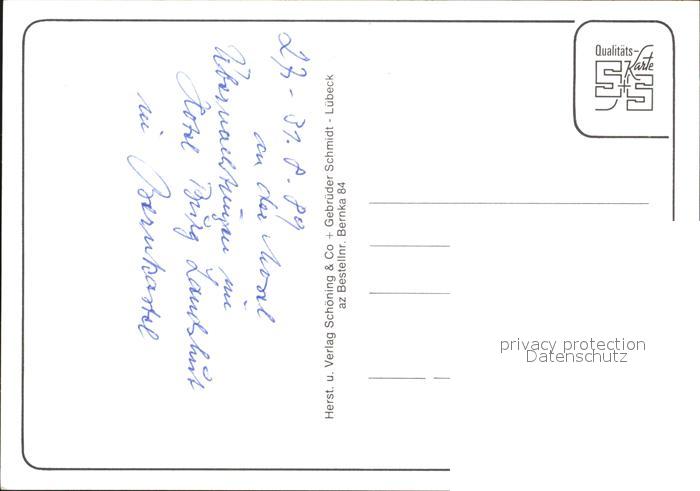 27. - 31. 8. 89
an der Mosel
Übernachtungen im
Hotel Burg Landshut
in Bernkastel
Herst. u. Verlag Schöning & Co + Gebrüder Schmidt - Lübeck
az Bestellnr. Bernka 84
Qualitäts-
Karte
S+S
privacy protection
Datenschutz